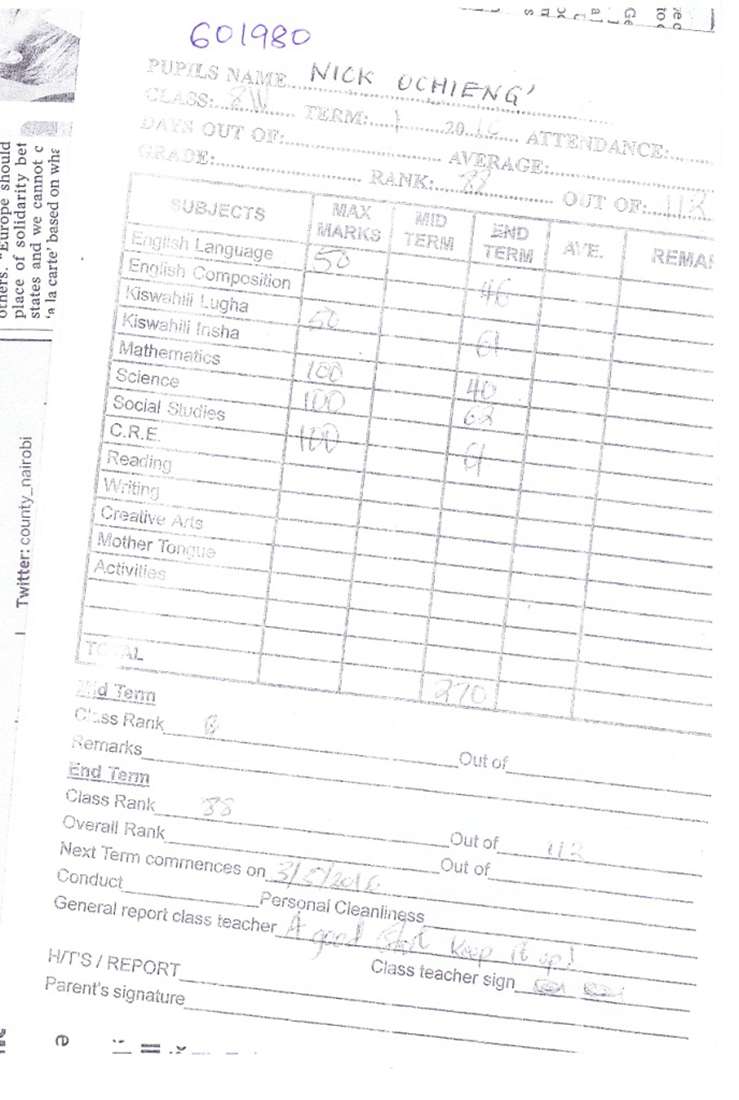 601980
PUPILS NAME NICK OCHIENG'
CLASS: 8W TERM: 1 2016 ATTENDANCE:
DAYS OUT OF: AVERAGE:
GRADE: RANK: 38 OUT OF: 113
SUBJECTS MAX MARKS MID TERM END TERM AVE. REMA
English Language 50
English Composition 46
Kiswahili Lugha 50
Kiswahili Insha 61
Mathematics 100 40
Science 100 62
Social Studies 100 61
C.R.E.
Reading
Writing
Creative Arts
Mother Tongue
Activities
TOTAL 270
Mid Term
Class Rank Out of
Remarks
End Term
Class Rank 38 Out of 113
Overall Rank Out of
Next Term commences on 3/5/2016
Conduct Personal Cleanliness
General report class teacher A good start keep it up!
Class teacher sign
H/T'S / REPORT
Parent's signature
others. "Europe should
place of solidarity bet
states and we cannot c
'a la carte' based on wha
Twitter: county_nairobi